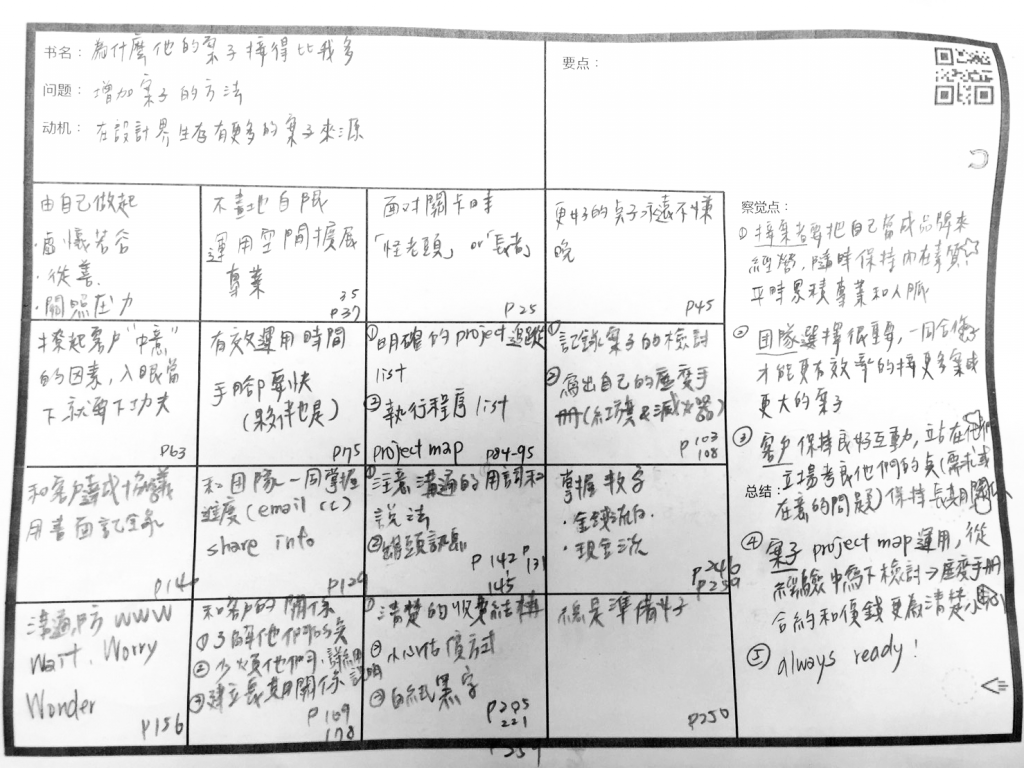 书名：為什麼他的案子接得比我多
问题：增加案子的方法
动机：在設計界生存有更多的案子來源
要点：
由自己做起
·虛懷若谷
·從善
·關照压力
不畫地自限
運用空間擴展
專業
35
P37
面对關卡時
「怪老頭」or「長者」
P25
更好的点子永遠不嫌
晚
P45
撩起客户"中意"
的因素，入眼當
下就要下功夫
P63
有效運用時間
手腳要快
(夥伴也是)
P75
①明確的project追蹤
list
②執行程序list
project map P84-95
①記錄案子的檢討
②寫出自己的應變手
冊(紅旗&滅火器)
P103
108
和客户達成協議
用書面記錄
P14
和團隊一同掌握
進度(email cc)
share info
P129
①注意溝通的用詞和
說法
②
P142 P131
145
掌握数字
·金錢流向
·現金流
P246
P259
溝通防WWW
Wait. Worry
Wonder
P156
和客户的關係
①了解他們
②少煩他們
③建立長期關係
P169
178
①清楚的收費結構
②小心估價方式
③白紙黑字
P205
221
P239
總是準備好
P250
察觉点：
①接案者要把自己當成品牌來
經營，隨時保持內在素質
平時累積專業和人脈
②团隊選擇很重要，一同合作
才能更有效率的接更多案或
更大的案子
③客户保持良好互動，立站在他們
立場考量他們的点(需求或
总结：
在意的問題)保持長期關係
④案子project map運用，從
經驗中寫下檢討→應變手冊
合約和價錢更敲清楚
⑤always ready!